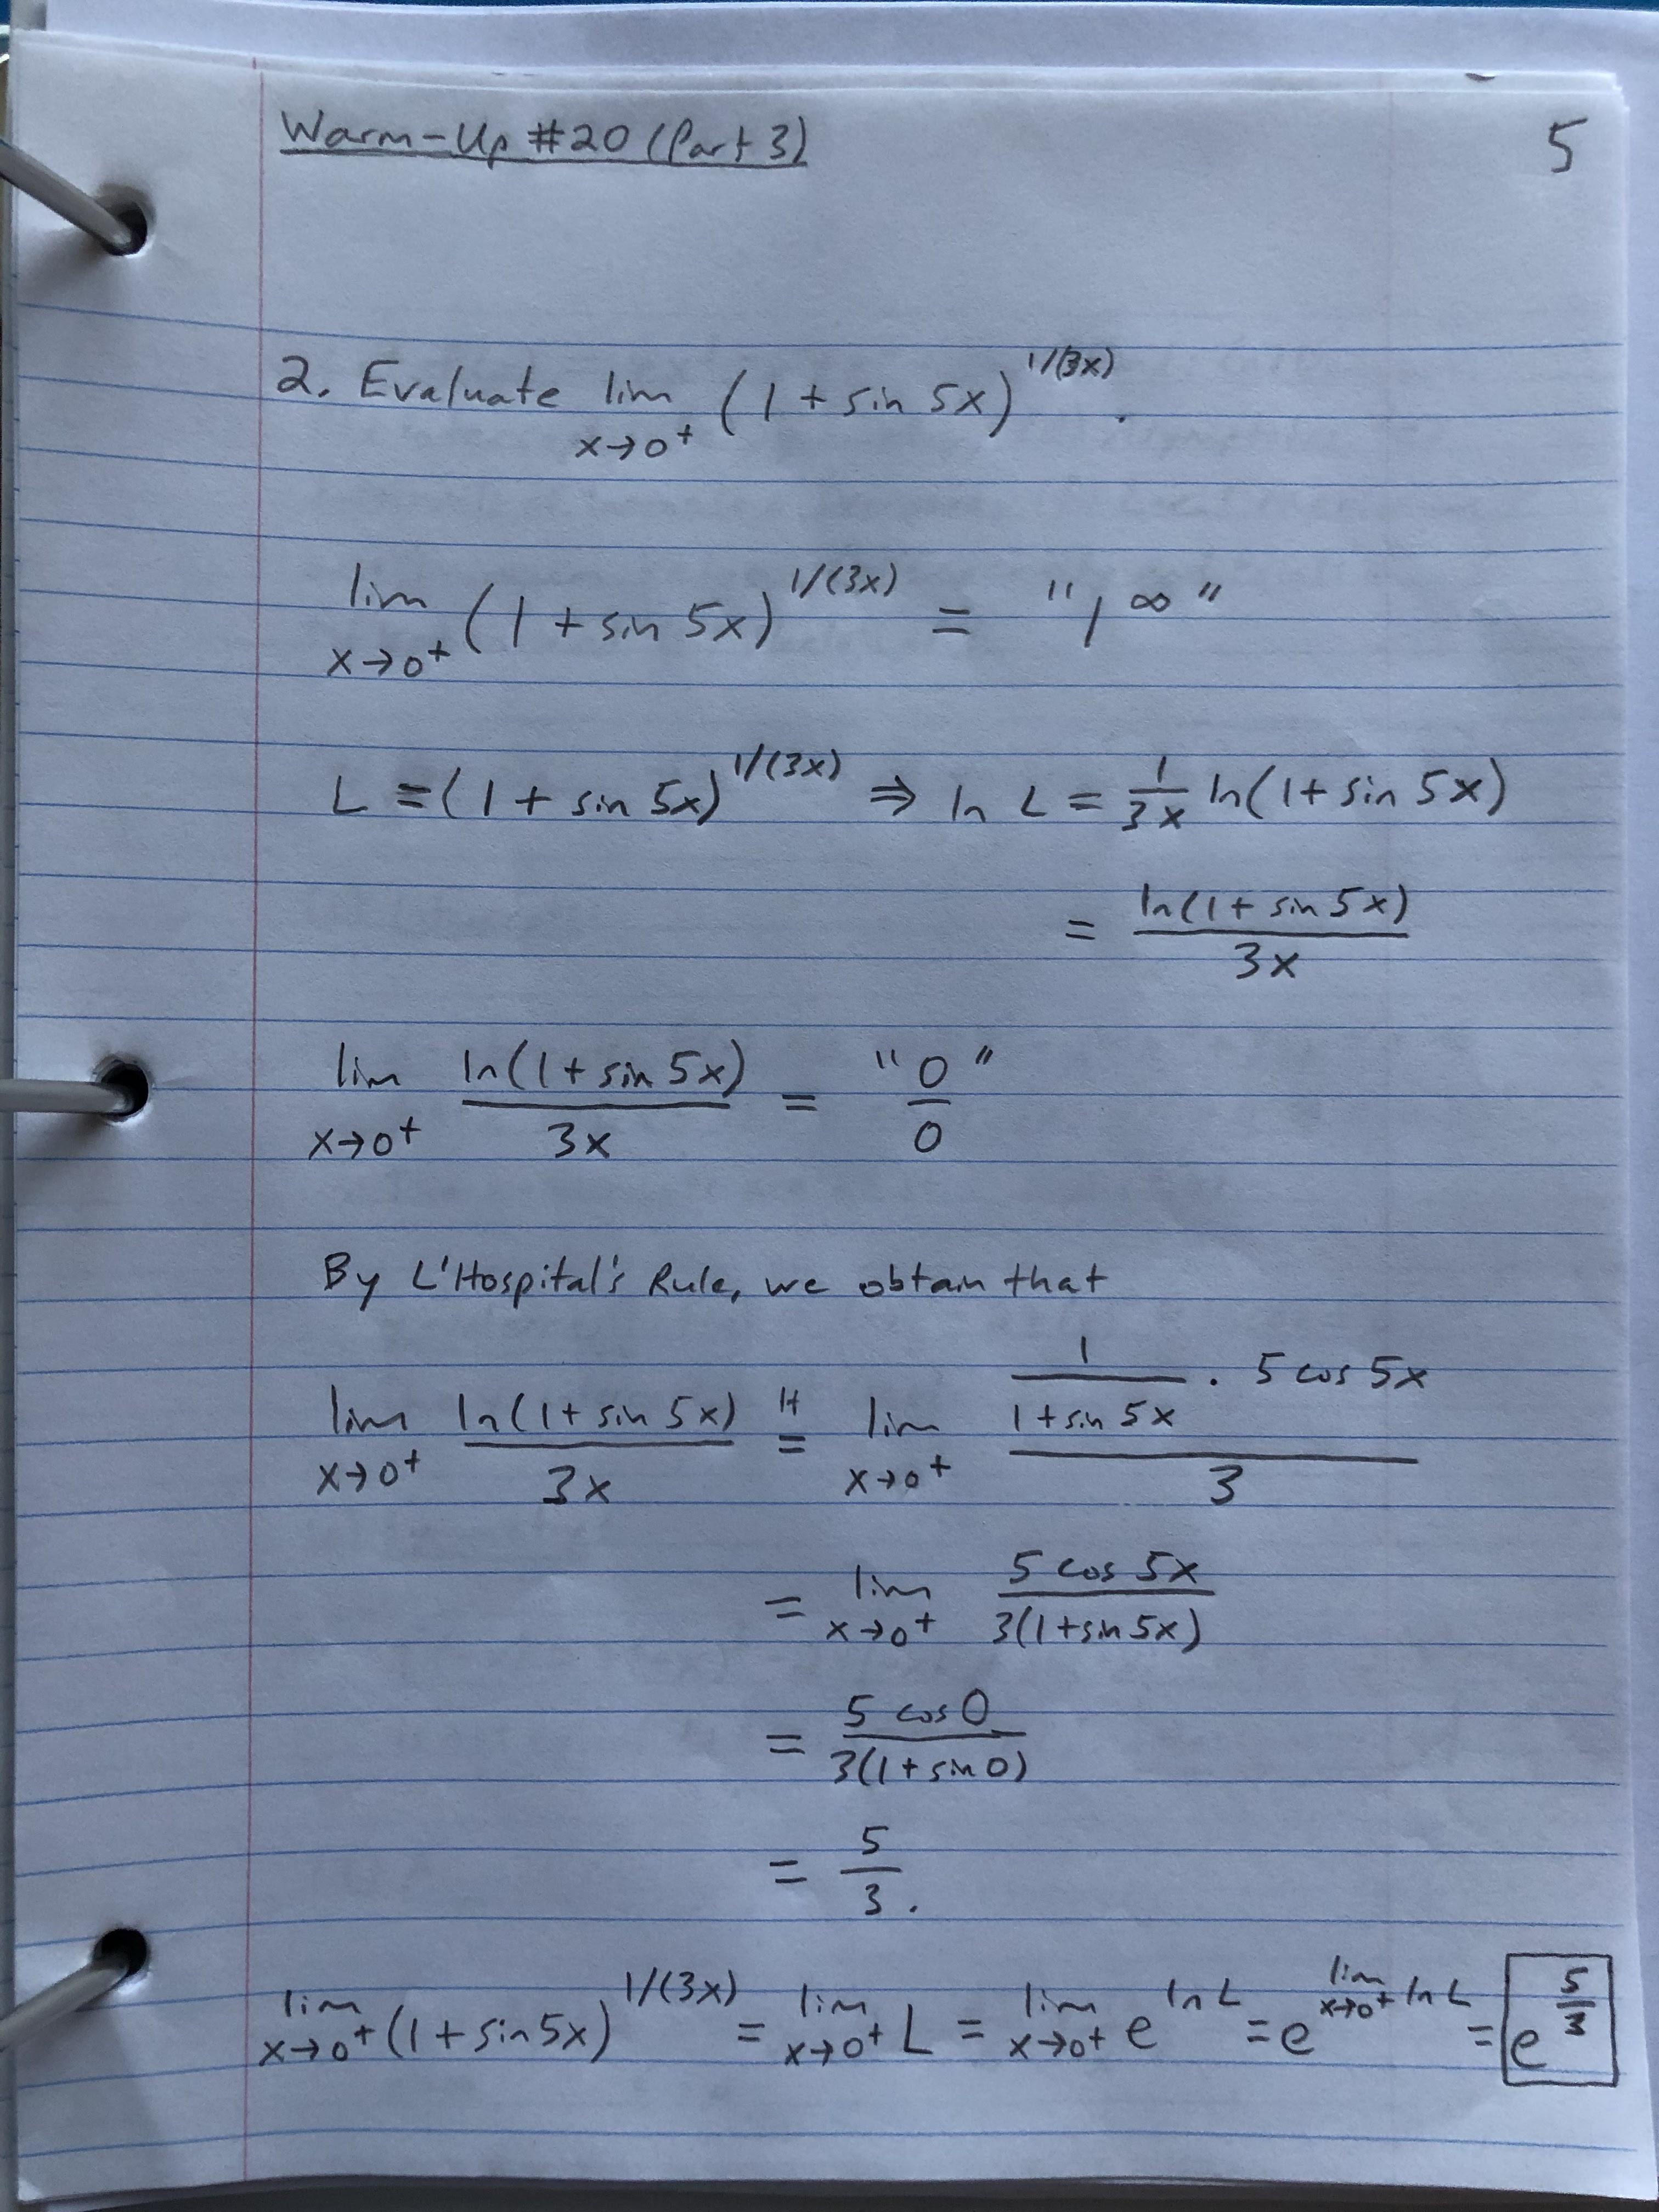 Warm-Up #20 (Part 3)
5
2. Evaluate lim x→0⁺ (1 + sin 5x)^1/(3x).
lim x→0⁺ (1 + sin 5x)^1/(3x) = "1^∞"
L = (1 + sin 5x)^1/(3x) ⇒ ln L = 1/3x ln(1 + sin 5x)
= ln(1 + sin 5x)/3x
lim x→0⁺ ln(1 + sin 5x)/3x = "0/0"
By L'Hospital's Rule, we obtain that
lim x→0⁺ ln(1 + sin 5x)/3x =^H lim x→0⁺ (1/(1 + sin 5x) · 5 cos 5x)/3
= lim x→0⁺ 5 cos 5x/3(1 + sin 5x)
= 5 cos 0/3(1 + sin 0)
= 5/3.
lim x→0⁺ (1 + sin 5x)^1/(3x) = lim x→0⁺ L = lim x→0⁺ e^ln L = e^lim x→0⁺ ln L = e^5/3